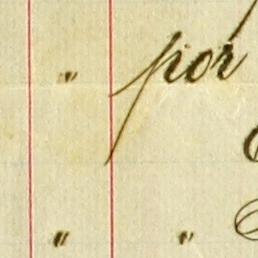 " por
" "